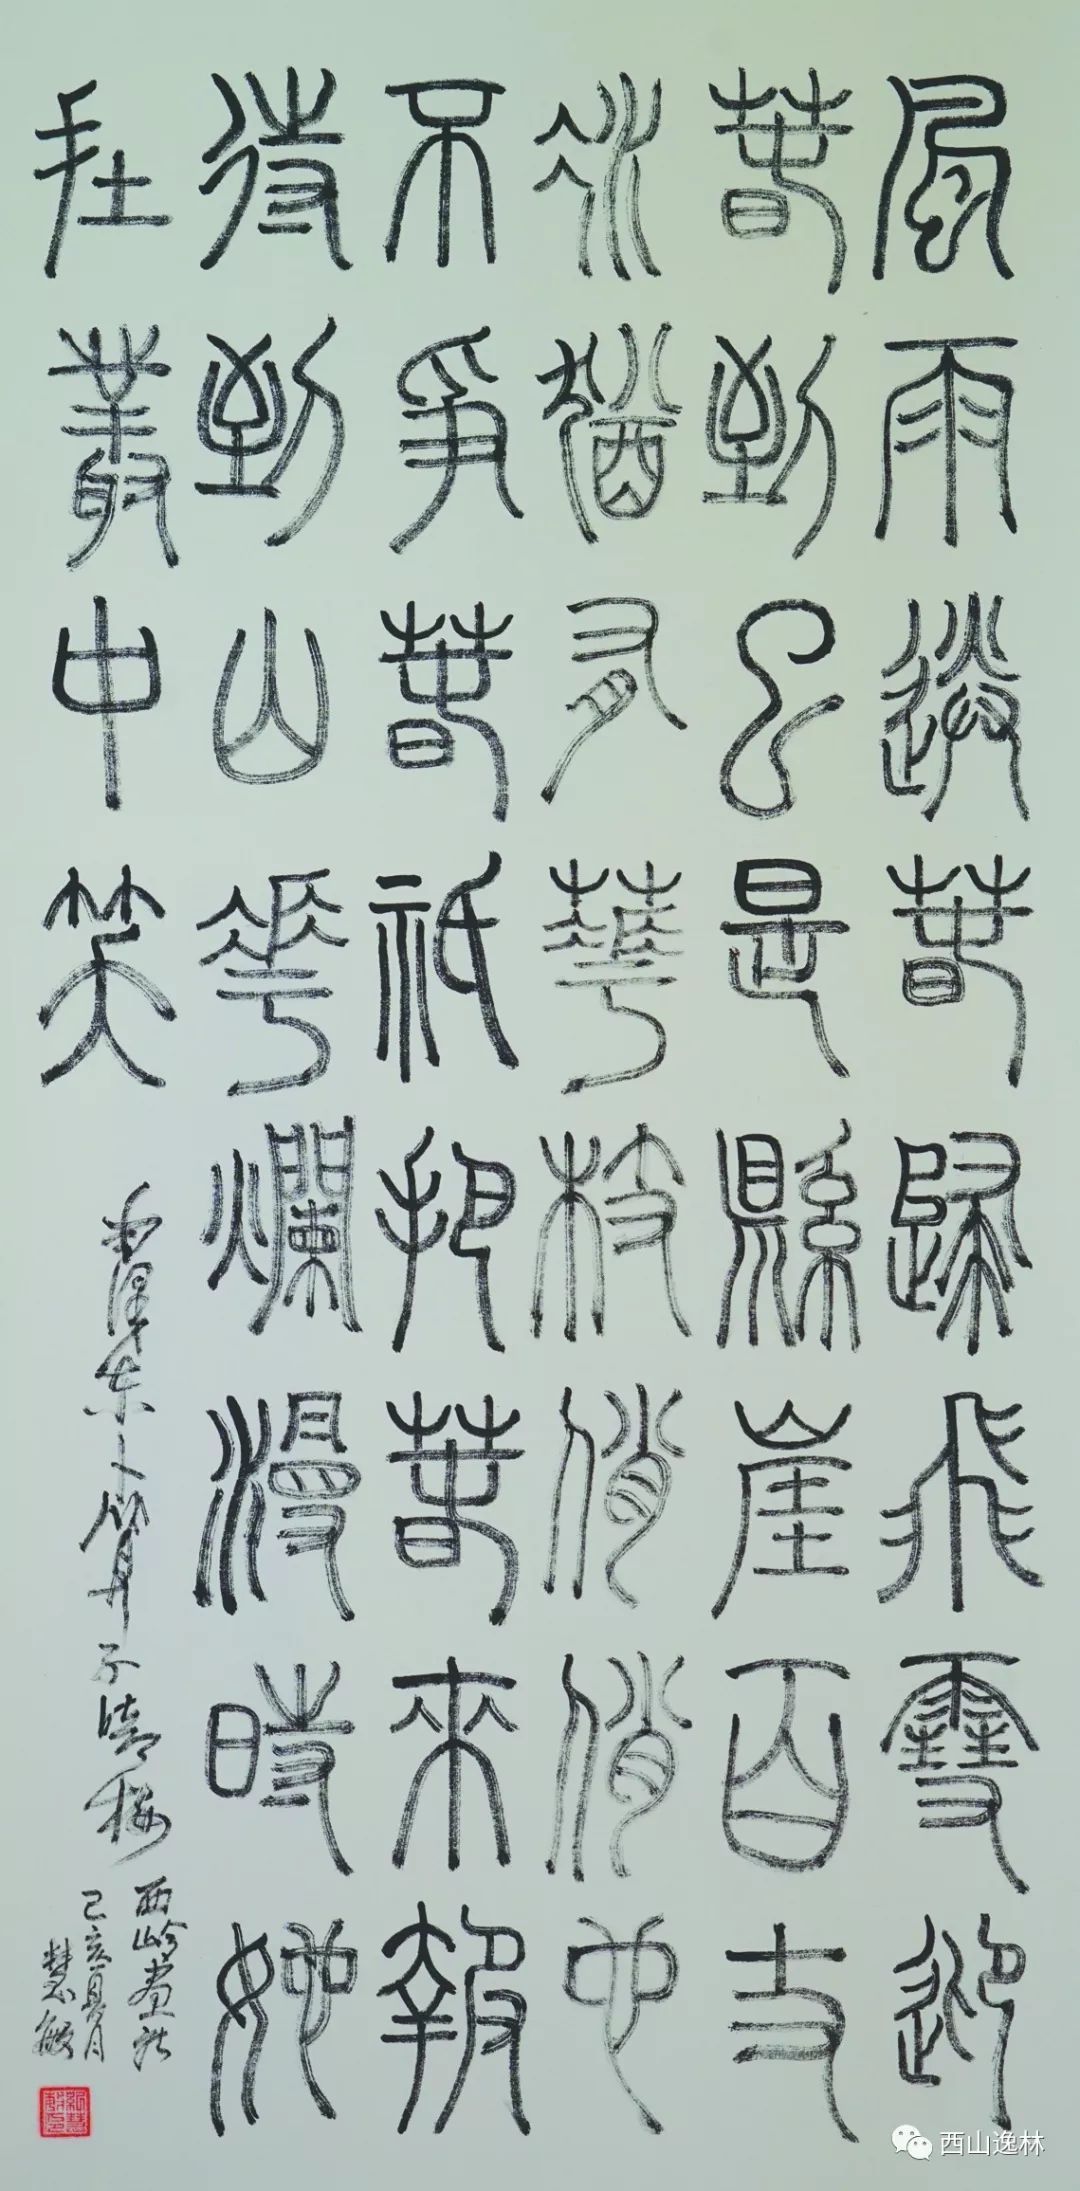 風雨送春歸飛雪迎
春到已是縣崖百丈
冰猶有華枝俏俏也
不爭春祇把春來報
待到山花爛漫時她
在叢中笑
毛澤東卜算子咏梅
西岭畫社
己亥夏月
慧敏
西山逸林